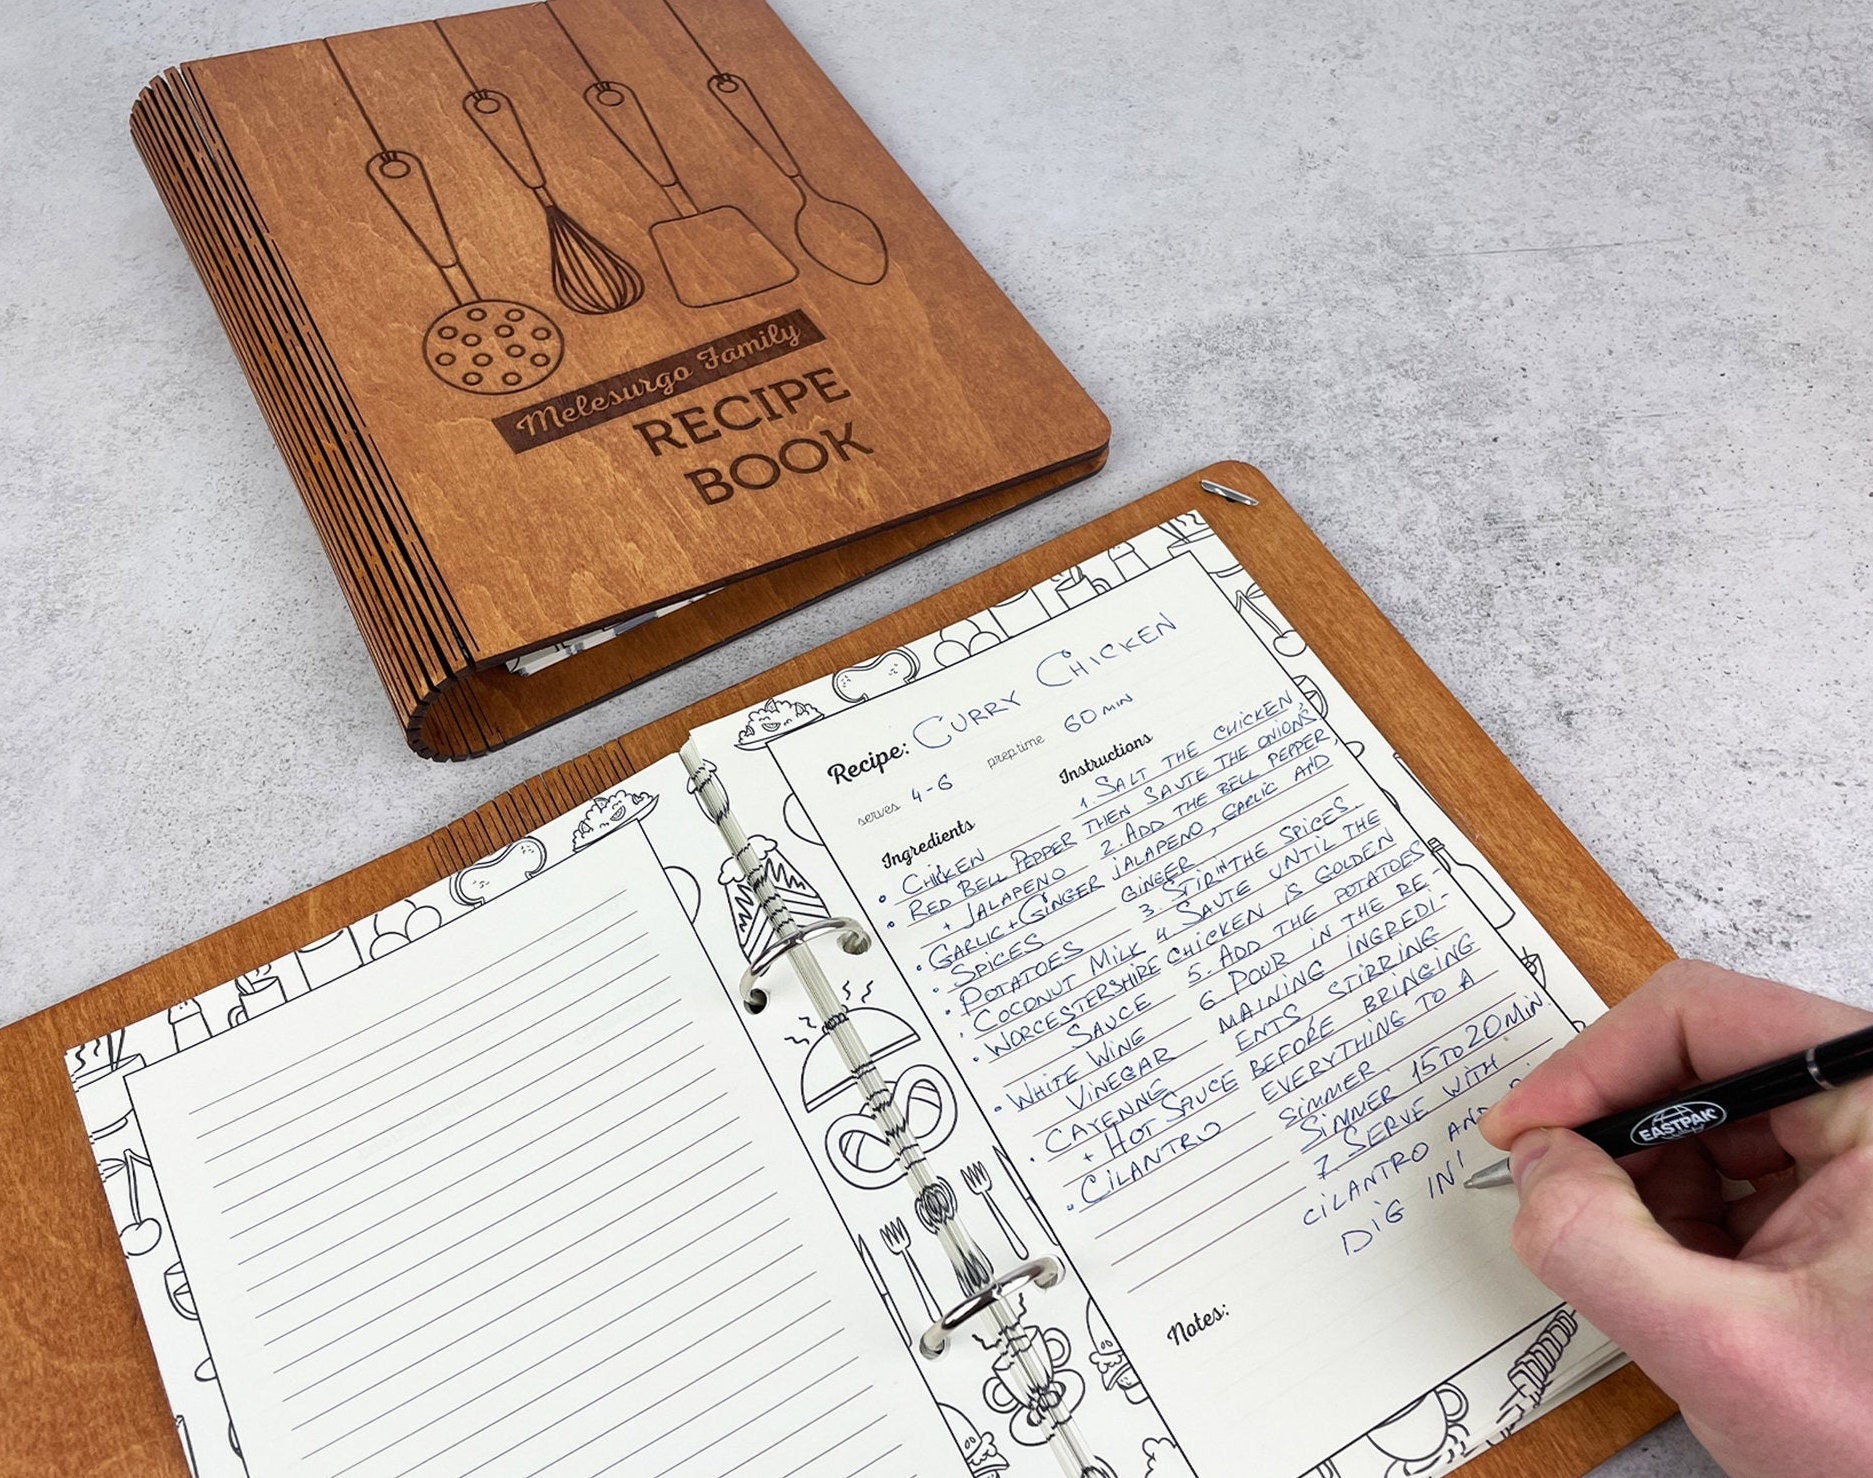 Melesurgo Family
RECIPE
BOOK
Recipe: CURRY CHICKEN
serves 4-6 prep time 60 MIN
Ingredients
• CHICKEN
• RED BELL PEPPER
+ JALAPENO
• GARLIC + GINGER
• SPICES
• POTATOES
• COCONUT MILK
• WORCESTERSHIRE
SAUCE
• WHITE WINE
VINEGAR
• CAYENNE
+ HOT SAUCE
• CILANTRO
Instructions
1. SALT THE CHICKEN,
THEN SAUTE THE ONIONS
2. ADD THE BELL PEPPER,
JALAPENO, GARLIC AND
GINGER
3. STIR IN THE SPICES
4. SAUTE UNTIL THE
CHICKEN IS GOLDEN
5. ADD THE POTATOES
6. POUR IN THE RE-
MAINING INGREDI-
ENTS, STIRRING
BEFORE BRINGING
EVERYTHING TO A
SIMMER.
SIMMER 15 TO 20 MIN
7. SERVE WITH
CILANTRO AND
DIG IN!
Notes:
EASTPAK